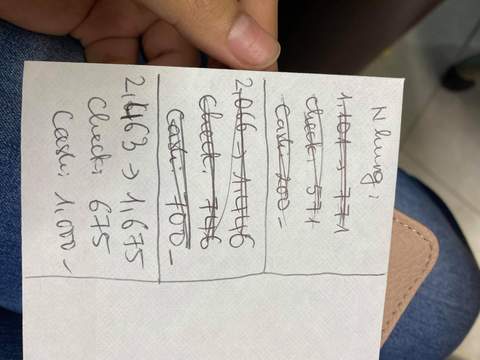 Nhung:
1,101 → 771
check: 571
Cash: 200 -
2,066 → 1,446
Check: 746
Cash: 700 -
2,463 → 1,675
Check: 675
Cash: 1,000 -